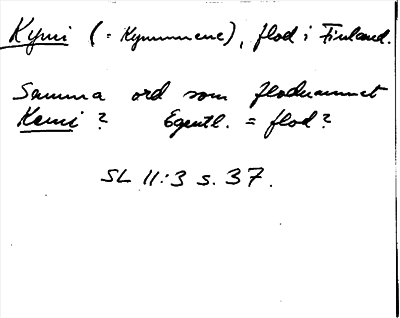 Kymi (= Kymmene), flod i Finland.
Samma ord som flodnamnet
Kemi? Egentl. = flod?
SL 11:3 s. 37.